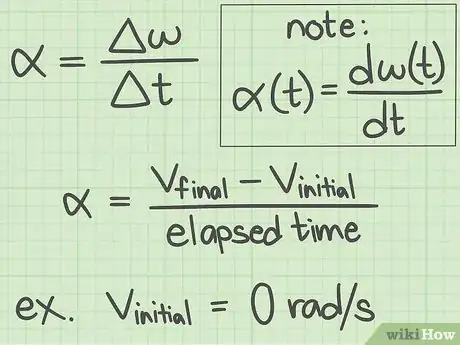 α = Δω / Δt
note:
α(t) = dω(t) / dt
α = Vfinal - Vinitial / elapsed time
ex. Vinitial = 0 rad/s
wikiHow